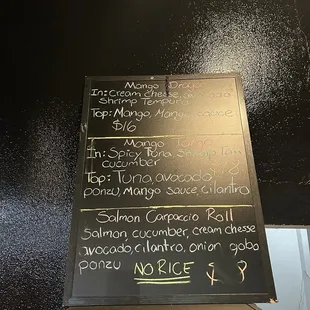 Mango
In: Cream cheese,
Shrimp Tempura
Top: Mango, Mango Sauce
$16
Mango
In: Spicy Tuna,
cucumber
Top: Tuna avocado
ponzu, Mango sauce, cilantro
Salmon Carpaccio Roll
Salmon cucumber, cream chesse
avocado, cilantro, onion gobo
ponzu NO RICE